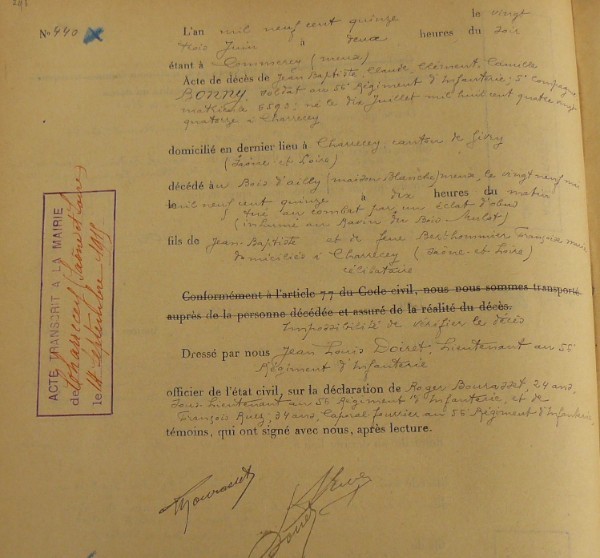 No 440
L'an mil neuf cent quinze le vingt
trois Juin à deux heures du soir
étant à Commercy (Meuse)
Acte de décès de Jean Baptiste, Claude, Clément, Camille
BONNY, soldat au 56e Régiment d'Infanterie, 5e Compagnie
matricule 6593, né le dix Juillet mil huit cent quatre vingt
quatorze à Charrecey
domicilié en dernier lieu à Charrecey, canton de Givry
(Saône et Loire)
décédé au Bois d'ailly (maison Blanche) Meuse, le vingt neuf mai
mil neuf cent quinze à dix heures du matin
tué au combat par un éclat d'obus
(inhumé au Ravin du Bois Mulot)
fils de Jean Baptiste et de feue Berthommier Françoise
domiciliés à Charrecey (Saône-et-Loire)
célibataire
Conformément à l'article 77 du Code civil, nous nous sommes transporté
auprès de la personne décédée et assuré de la réalité du décès.
Impossibilité de vérifier le décès
Dressé par nous Jean Louis Doiret, Lieutenant au 56e
Régiment d'Infanterie
officier de l'état civil, sur la déclaration de Roger Bourasset, 24 ans,
Sous Lieutenant au 56e Régiment d'Infanterie, et de
François Ruez, 34 ans, Caporal fourrier au 56e Régiment d'Infanterie,
témoins, qui ont signé avec nous, après lecture.
Bourasset
Doiret
ACTE TRANSCRIT A LA MAIRIE
de Charrecey (Saône et Loire)
le 18 Septembre 1915